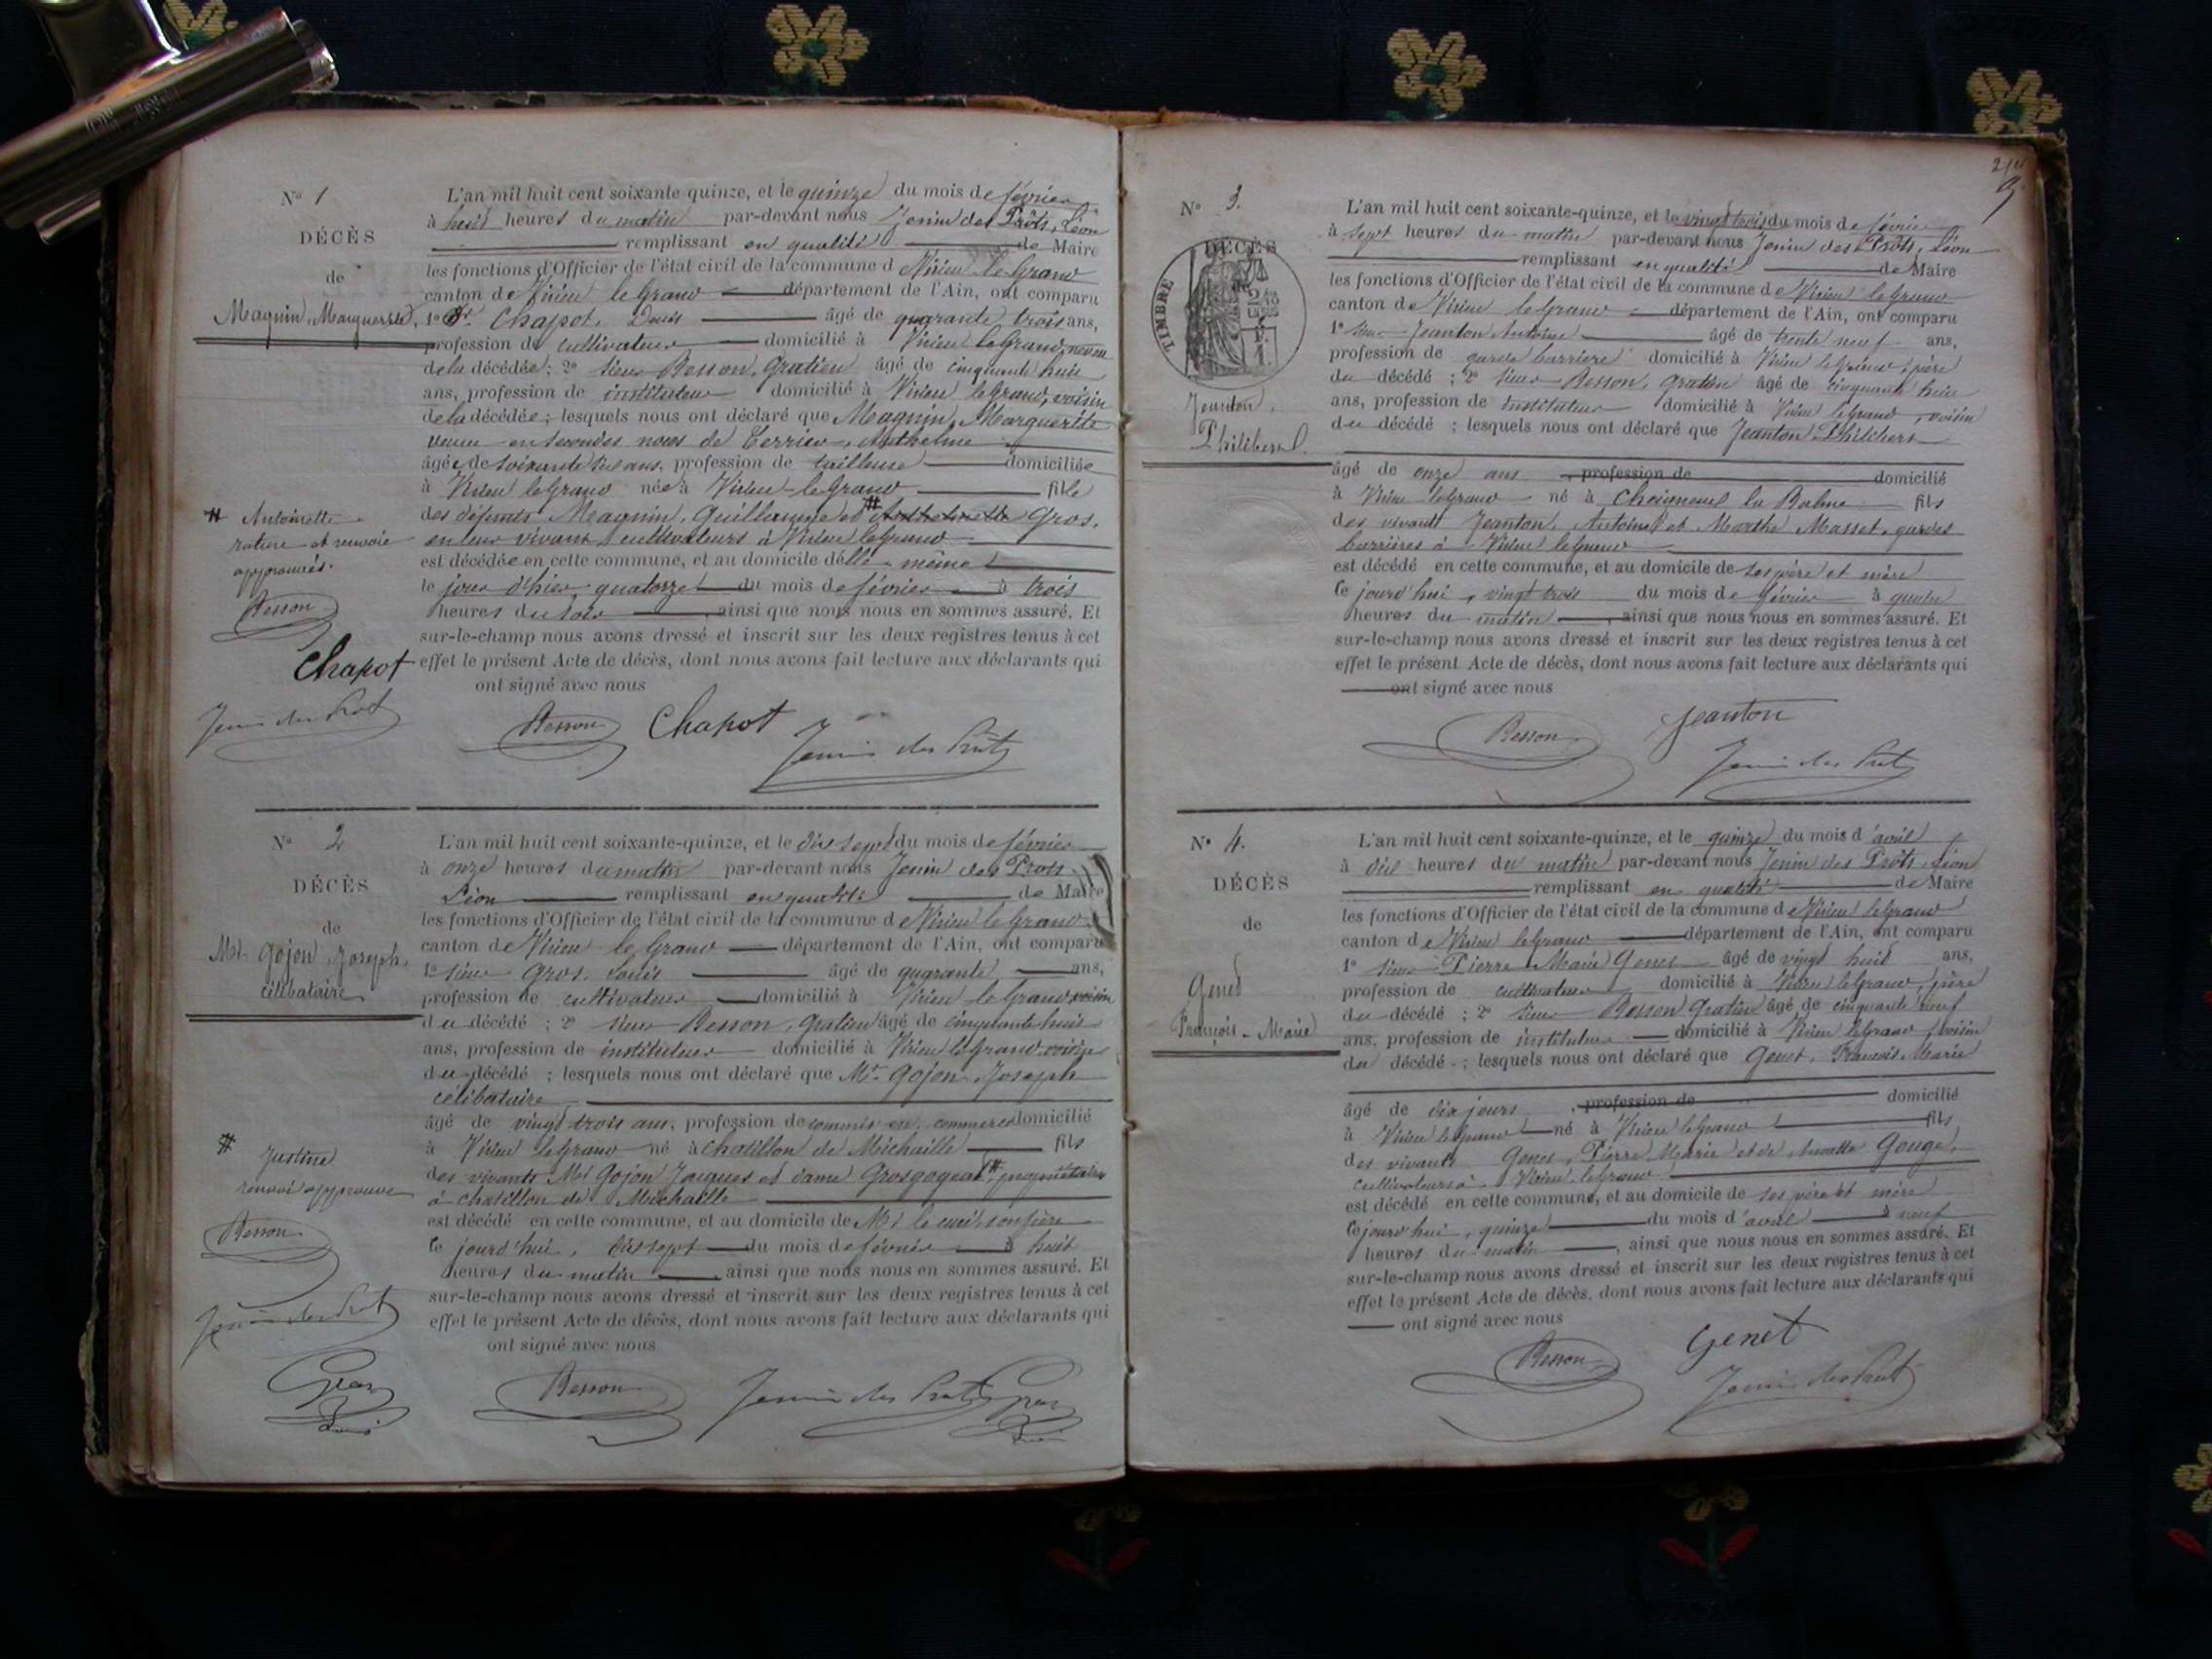 N° 1
DÉCÈS
de
Magnin, Marguerite,
L'an mil huit cent soixante quinze, et le quinze du mois de février
à huit heures du matin par-devant nous Jenin des Prôts, Léon
remplissant en qualité de Maire
les fonctions d'Officier de l'état civil de la commune de Virieu le Grand
canton de Virieu le Grand département de l'Ain, ont comparu
1° Sr Chapot, Denis âgé de quarante trois ans,
profession de cultivateur domicilié à Virieu le Grand, neveu
de la décédée; 2° sieur Besson, Gratien âgé de cinquante huit
ans, profession de instituteur domicilié à Virieu le Grand, voisin
de la décédée; lesquels nous ont déclaré que Magnin, Marguerite
veuve en secondes noces de Terrier, Anthelme
âgée de soixante six ans, profession de tailleuse domiciliée
à Virieu le Grand née à Virieu-le-Grand fille
des défunts Magnin, Guillaume et # Gros,
en leur vivant cultivateurs à Virieu le Grand
est décédée en cette commune, et au domicile d'elle-même
le jour d'hier quatorze du mois de février à trois
heures du soir , ainsi que nous nous en sommes assuré. Et
sur-le-champ nous avons dressé et inscrit sur les deux registres tenus à cet
effet le présent Acte de décès, dont nous avons fait lecture aux déclarants qui
ont signé avec nous
# Antoinette
rature et renvoie
approuvés.
Besson
Chapot
Jenin des Prôts
Besson Chapot
Jenin des Prôts
N° 2
DÉCÈS
de
Mr Gojon Joseph,
célibataire
L'an mil huit cent soixante-quinze, et le dix sept du mois de février
à onze heures du matin par-devant nous Jenin des Prôts
Léon remplissant en qualité de Maire
les fonctions d'Officier de l'état civil de la commune de Virieu le Grand
canton de Virieu le Grand département de l'Ain, ont comparu
1° sieur Gros, Louis âgé de quarante ans,
profession de cultivateur domicilié à Virieu le Grand voisin
du décédé ; 2° sieur Besson, Gratien âgé de cinquante huit
ans, profession de instituteur domicilié à Virieu le Grand voisin
du décédé ; lesquels nous ont déclaré que Mr Gojon Joseph
célibataire
âgé de vingt trois ans, profession de commis en commerce domicilié
à Virieu le Grand né à Chatillon de Michaille fils
des vivants Mr Gojon Jacques et dame Grosgogeat # propriétaires
à Chatillon de Michaille
est décédé en cette commune, et au domicile de Mr le curé, son frère
ce jourd'hui, dix sept du mois de février à huit
heures du matin , ainsi que nous nous en sommes assuré. Et
sur-le-champ nous avons dressé et inscrit sur les deux registres tenus à cet
effet le présent Acte de décès, dont nous avons fait lecture aux déclarants qui
ont signé avec nous
# Justine
renvoi approuvé
Besson
Jenin des Prôts
Gros
Louis
Besson Jenin des Prôts Gros
Louis
N° 3.
DÉCÈS
TIMBRE
Jeanton,
Philibert.
L'an mil huit cent soixante-quinze, et le vingt trois du mois de février
à sept heures du matin par-devant nous Jenin des Prôts, Léon
remplissant en qualité de Maire
les fonctions d'Officier de l'état civil de la commune de Virieu le Grand
canton de Virieu le Grand département de l'Ain, ont comparu
1° sieur Jeanton Antoine âgé de trente neuf ans,
profession de garde barrière domicilié à Virieu le Grand, père
du décédé ; 2° sieur Besson, Gratien âgé de cinquante huit
ans, profession de instituteur domicilié à Virieu le Grand, voisin
du décédé ; lesquels nous ont déclaré que Jeanton Philibert
âgé de onze ans , profession de domicilié
à Virieu le Grand né à la Balme fils
des vivants Jeanton, Antoine et Marthe Masset, gardes
barrières à Virieu le Grand
est décédé en cette commune, et au domicile de ses père et mère
ce jourd'hui, vingt trois du mois de février à quatre
heures du matin , ainsi que nous nous en sommes assuré. Et
sur-le-champ nous avons dressé et inscrit sur les deux registres tenus à cet
effet le présent Acte de décès, dont nous avons fait lecture aux déclarants qui
ont signé avec nous
Besson Jeanton
Jenin des Prôts
N° 4.
DÉCÈS
de
Genet
François-Marie
L'an mil huit cent soixante-quinze, et le quinze du mois d'avril
à dix heures du matin par-devant nous Jenin des Prôts Léon
remplissant en qualité de Maire
les fonctions d'Officier de l'état civil de la commune de Virieu le Grand
canton de Virieu le Grand département de l'Ain, ont comparu
1° sieur Pierre Marie Genet âgé de vingt huit ans,
profession de cultivateur domicilié à Virieu le Grand, père
du décédé ; 2° sieur Besson Gratien âgé de cinquante neuf
ans, profession de instituteur domicilié à Virieu le Grand, voisin
du décédé ; lesquels nous ont déclaré que Genet, François Marie
âgé de dix jours , profession de domicilié
à Virieu le Grand né à Virieu le Grand fils
des vivants Genet, Pierre Marie et de Gouge,
cultivateurs à Virieu le Grand
est décédé en cette commune, et au domicile de ses père et mère
ce jourd'hui, quinze du mois d'avril à neuf
heures du matin , ainsi que nous nous en sommes assuré. Et
sur-le-champ nous avons dressé et inscrit sur les deux registres tenus à cet
effet le présent Acte de décès, dont nous avons fait lecture aux déclarants qui
ont signé avec nous
Besson Genet
Jenin des Prôts